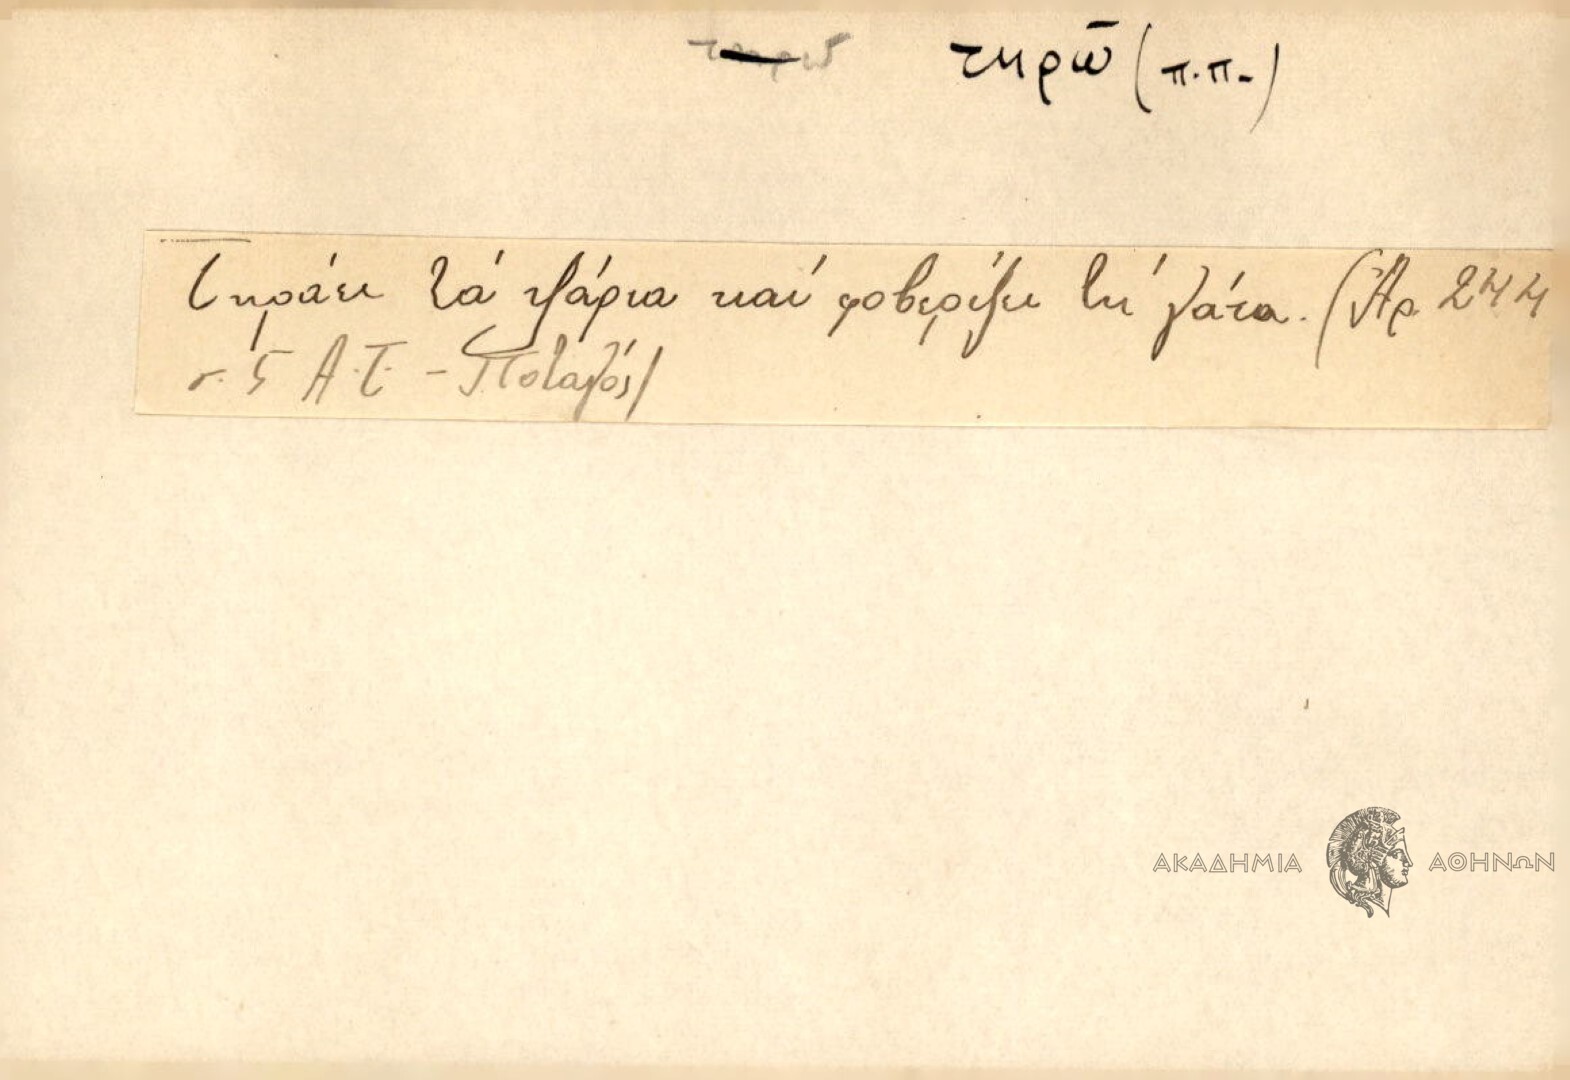 τηρῶ (π.π.)
Τηράει τά ψάρια καί φοβερίζει τή γάτα. (Ἀρ. 244
σ. 5 Α.Τ. - Ποταμός)
ΑΚΑΔΗΜΙΑ ΑΘΗΝΩΝ